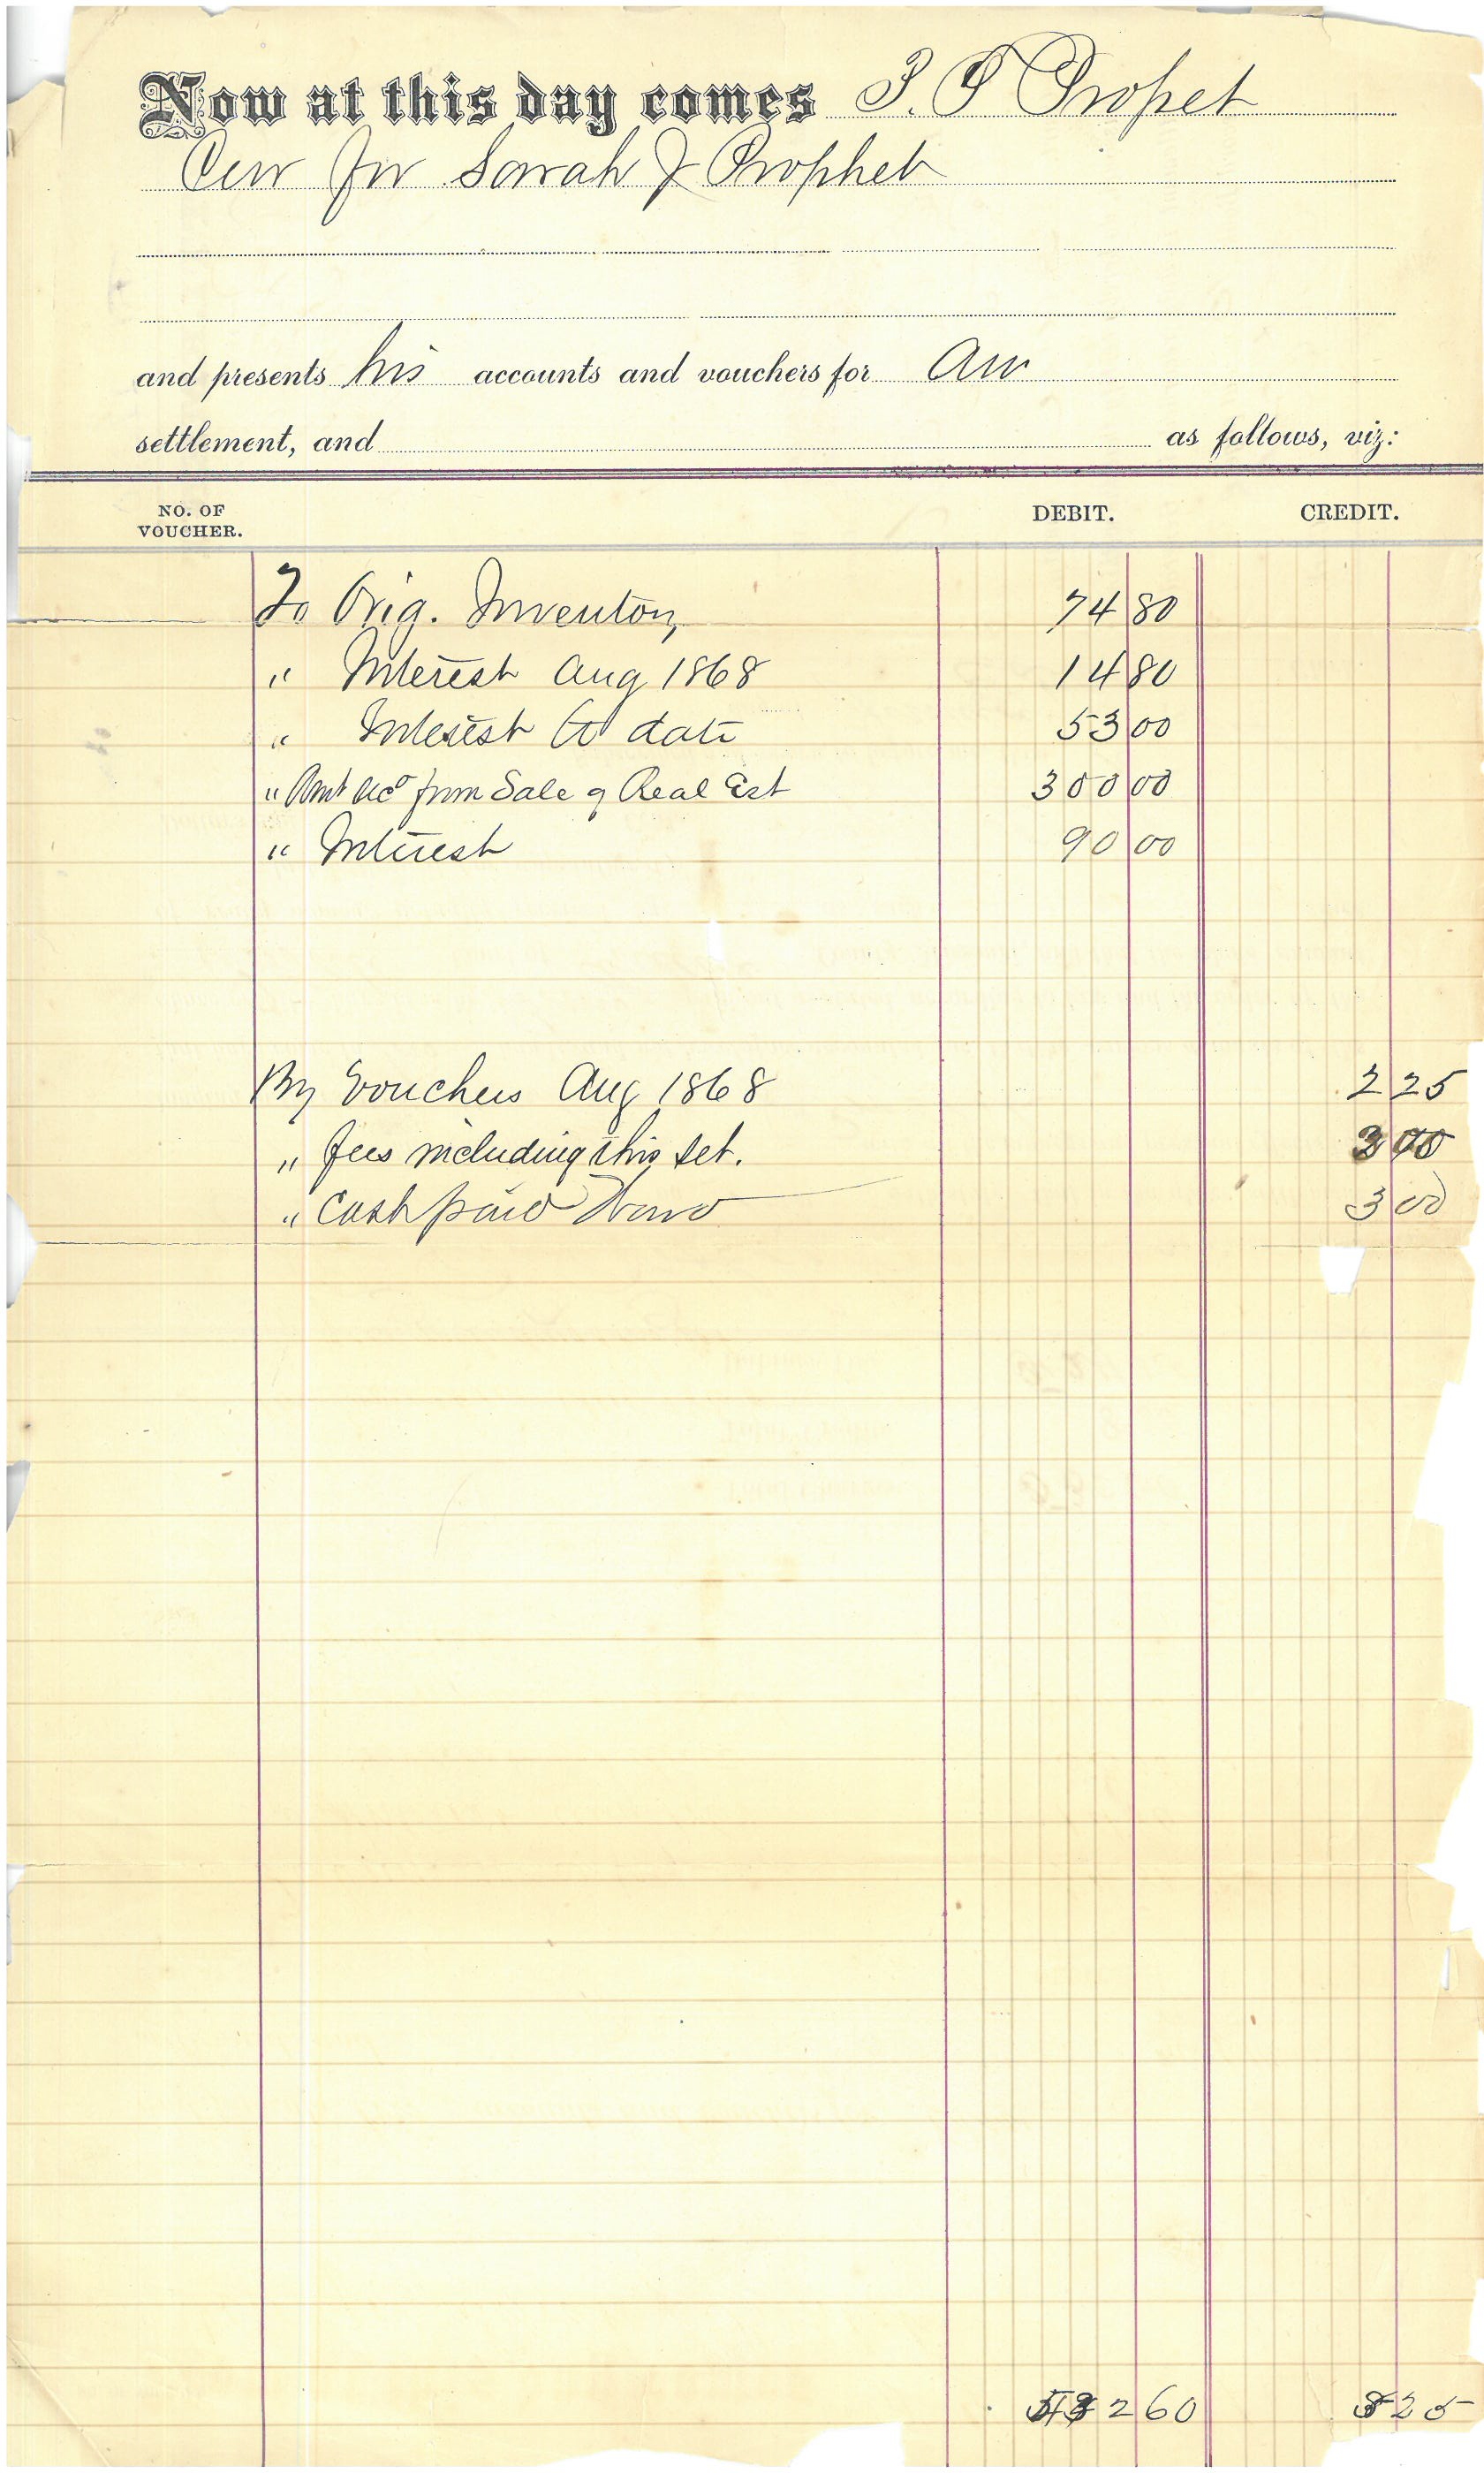 Now at this day comes S. P Propet
Cur for Sarah J Prophet
and presents his accounts and vouchers for an
settlement, and as follows, viz:
NO. OF VOUCHER. DEBIT. CREDIT.
To Orig. Inventory 74 80
" Interest Aug 1868 14 80
" Interest to date 53 00
" Amt recd from Sale of Real Est 300 00
" Interest 90 00
By Vouchers Aug 1868 2 25
" fees including this set. 3 00
" Cash paid Ward 3 00
532 60 8 25